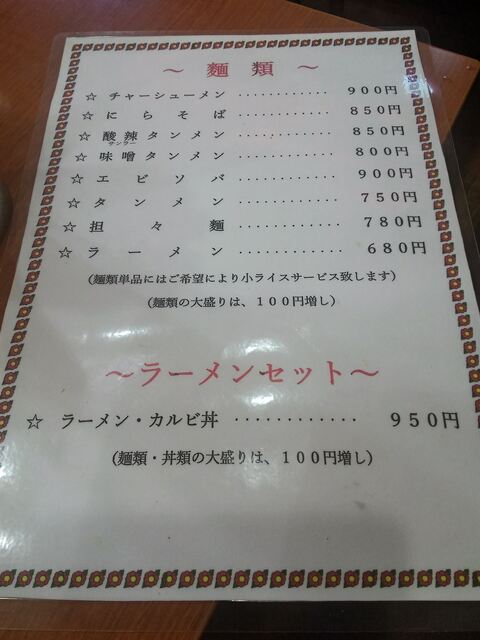 ～ 麺 類 ～
☆ チャーシューメン ・・・・・・・・・・・・ ９００円
☆ に ら そ ば ・・・・・・・・・・・・ ８５０円
☆ 酸辣タンメン ・・・・・・・・・・・・ ８５０円
サンラー
☆ 味噌タンメン ・・・・・・・・・・・・ ８００円
☆ エ ビ ソ バ ・・・・・・・・・・・・ ９００円
☆ タ ン メ ン ・・・・・・・・・・・・ ７５０円
☆ 担 々 麺 ・・・・・・・・・・・・ ７８０円
☆ ラ ー メ ン ・・・・・・・・・・・・ ６８０円
（麺類単品にはご希望により小ライスサービス致します）
（麺類の大盛りは、１００円増し）
～ラーメンセット～
☆ ラーメン・カルビ丼 ・・・・・・・・・・・・ ９５０円
（麺類・丼類の大盛りは、１００円増し）